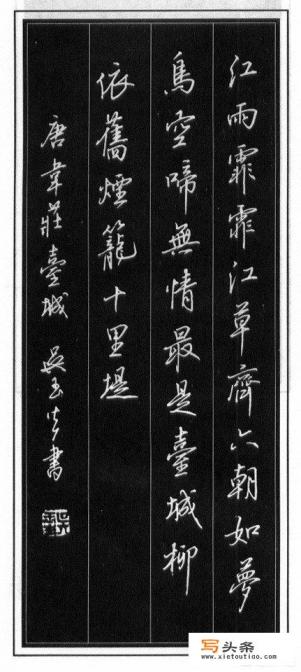 江雨霏霏江草齊六朝如夢
鳥空啼無情最是臺城柳
依舊煙籠十里堤
唐韋莊臺城 吳玉生書
写头条
www.xietoutiao.com